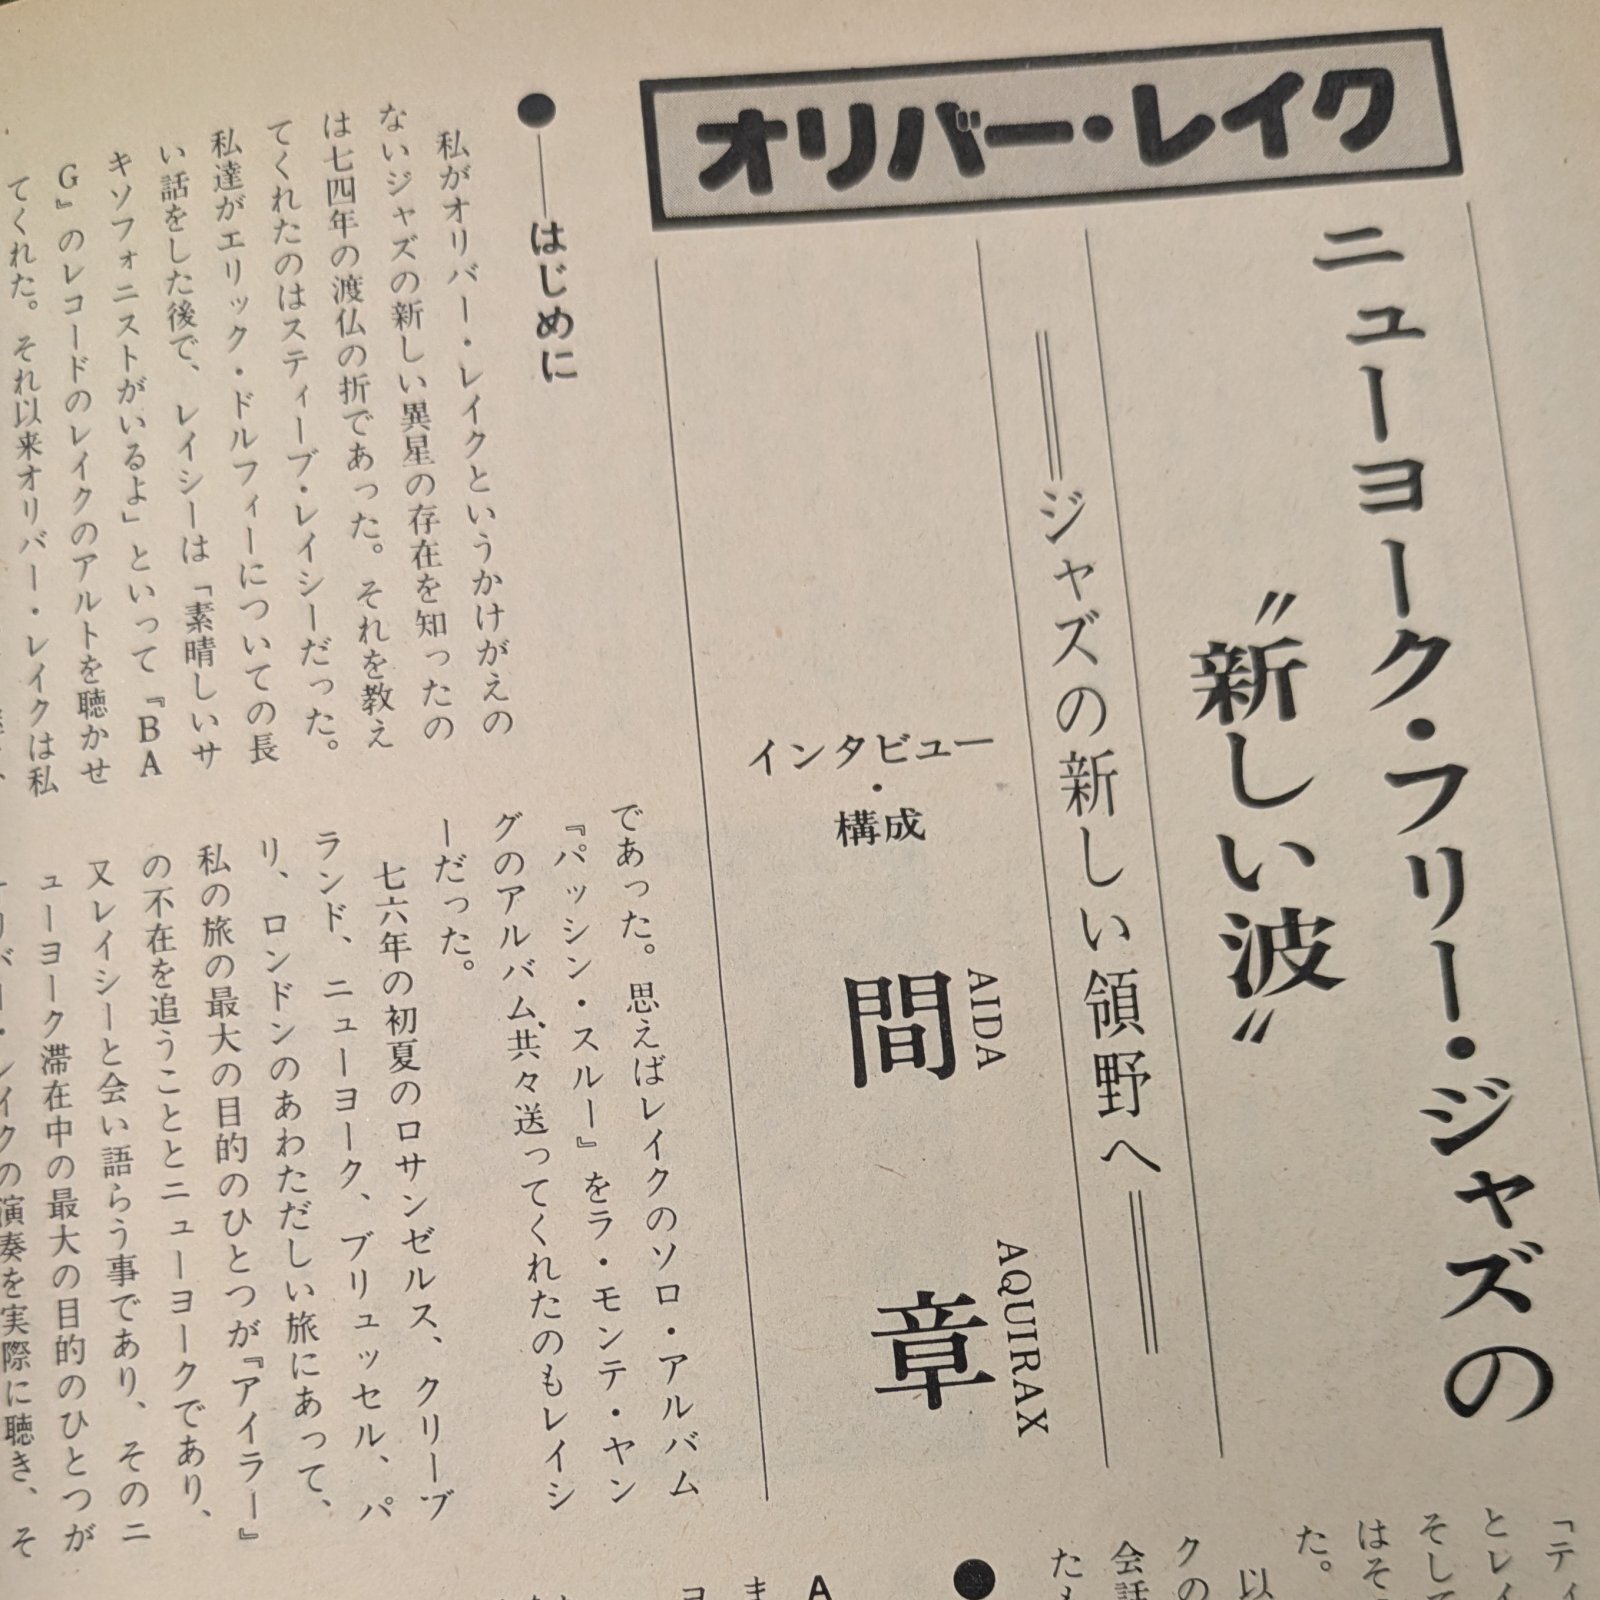 オリバー・レイク
ニューヨーク・フリー・ジャズの
〝新しい波〟
══ジャズの新しい領野へ══
インタビュー・構成
間 章
AIDA AQUIRAX
●──はじめに
私がオリバー・レイクというかけがえの
ないジャズの新しい異星の存在を知ったの
は七四年の渡仏の折であった。それを教え
てくれたのはスティーブ・レイシーだった。
私達がエリック・ドルフィーについての長
い話をした後で、レイシーは「素晴しいサ
キソフォニストがいるよ」といって『BA
G』のレコードのレイクのアルトを聴かせ
てくれた。それ以来オリバー・レイクは私
であった。思えばレイクのソロ・アルバム
『パッシン・スルー』をラ・モンテ・ヤン
グのアルバム共々送ってくれたのもレイシ
ーだった。
七六年の初夏のロサンゼルス、クリーブ
ランド、ニューヨーク、ブリュッセル、パ
リ、ロンドンのあわただしい旅にあって、
私の旅の最大の目的のひとつが『アイラー』
の不在を追うこととニューヨークであり、
又レイシーと会い語らう事であり、そのニ
ューヨーク滞在中の最大の目的のひとつが
オリバー・レイクの演奏を実際に聴き、そ
「ティ
とレイ
そして
はそ
た。
以
クの
会話
●
A
ま
ヨ